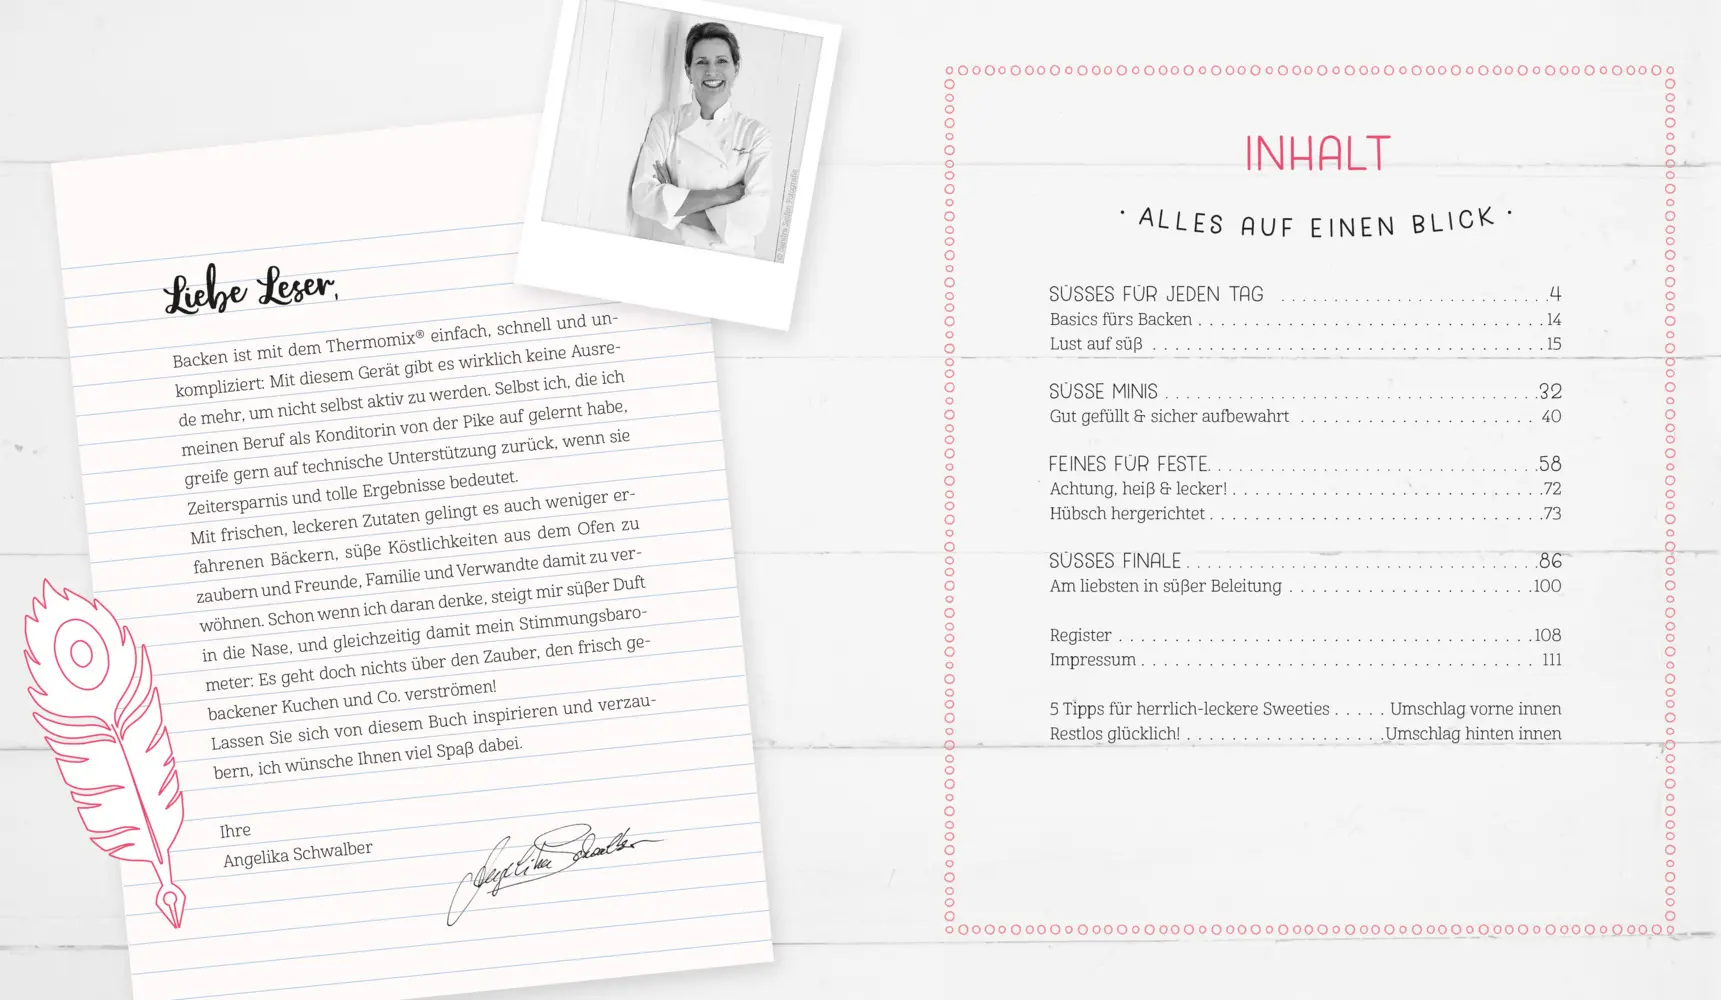 © Sandra Seifen Fotografie
Liebe Leser,
Backen ist mit dem Thermomix® einfach, schnell und un-
kompliziert: Mit diesem Gerät gibt es wirklich keine Ausre-
de mehr, um nicht selbst aktiv zu werden. Selbst ich, die ich
meinen Beruf als Konditorin von der Pike auf gelernt habe,
greife gern auf technische Unterstützung zurück, wenn sie
Zeitersparnis und tolle Ergebnisse bedeutet.
Mit frischen, leckeren Zutaten gelingt es auch weniger er-
fahrenen Bäckern, süße Köstlichkeiten aus dem Ofen zu
zaubern und Freunde, Familie und Verwandte damit zu ver-
wöhnen. Schon wenn ich daran denke, steigt mir süßer Duft
in die Nase, und gleichzeitig damit mein Stimmungsbaro-
meter: Es geht doch nichts über den Zauber, den frisch ge-
backener Kuchen und Co. verströmen!
Lassen Sie sich von diesem Buch inspirieren und verzau-
bern, ich wünsche Ihnen viel Spaß dabei.
Ihre
Angelika Schwalber
Angelika Schwalber
INHALT
· ALLES AUF EINEN BLICK ·
SÜSSES FÜR JEDEN TAG . . . . . . . . . . . . . . . . . . . . . . . . 4
Basics fürs Backen . . . . . . . . . . . . . . . . . . . . . . . . . . . . . 14
Lust auf süß . . . . . . . . . . . . . . . . . . . . . . . . . . . . . . . . . 15
SÜSSE MINIS . . . . . . . . . . . . . . . . . . . . . . . . . . . . . . . . 32
Gut gefüllt & sicher aufbewahrt . . . . . . . . . . . . . . . . . . . . 40
FEINES FÜR FESTE. . . . . . . . . . . . . . . . . . . . . . . . . . . . 58
Achtung, heiß & lecker! . . . . . . . . . . . . . . . . . . . . . . . . . . 72
Hübsch hergerichtet . . . . . . . . . . . . . . . . . . . . . . . . . . . . 73
SÜSSES FINALE . . . . . . . . . . . . . . . . . . . . . . . . . . . . . . 86
Am liebsten in süßer Beleitung . . . . . . . . . . . . . . . . . . . . . 100
Register . . . . . . . . . . . . . . . . . . . . . . . . . . . . . . . . . . . 108
Impressum . . . . . . . . . . . . . . . . . . . . . . . . . . . . . . . . . 111
5 Tipps für herrlich-leckere Sweeties . . . . . Umschlag vorne innen
Restlos glücklich! . . . . . . . . . . . . . . . . . Umschlag hinten innen